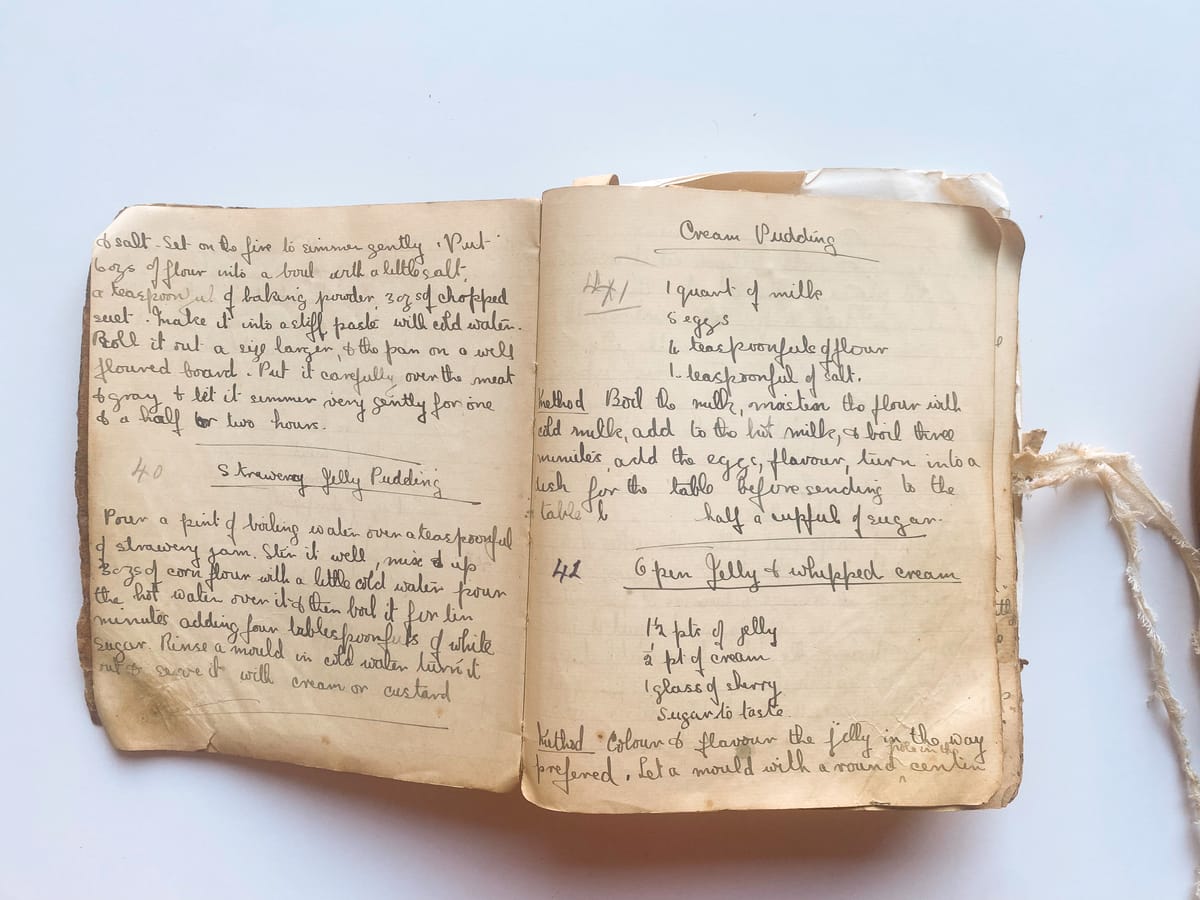 & salt - Set on the fire to simmer gently. Put
6 ozs of flour into a bowl with a little salt,
a teaspoonful of baking powder, 3 ozs of chopped
suet. Make it into a stiff paste with cold water.
Roll it out a size larger, & the pan on a well
floured board. Put it carefully over the meat
& gray & let it simmer very gently for one
& a half or two hours.
40
Strawerry Jelly Pudding
Pour a pint of boiling water over a teaspoonful
of strawery jam. Stir it well, mix & up
3 ozs of corn flour with a little cold water pour
the hot water over it & then boil it for ten
minutes adding four tablespoonfuls of white
sugar. Rinse a mould in cold water turn it
out & serve it with cream or custard
Cream Pudding
41
1 quart of milk
eggs
4 teaspoonfuls of flour
1 teaspoonful of salt.
Method Boil the milk, moisten the flour with
cold milk, add to the hot milk, & boil three
minutes, add the eggs, flavour, turn into a
dish for the table before sending to the
table half a cupful of sugar.
42
Open Jelly & whipped cream
1½ pts of jelly
½ pt of cream
1 glass of sherry
Sugar to taste.
Method Colour & flavour the jelly in the way
prefered. Let a mould with a round in the centre